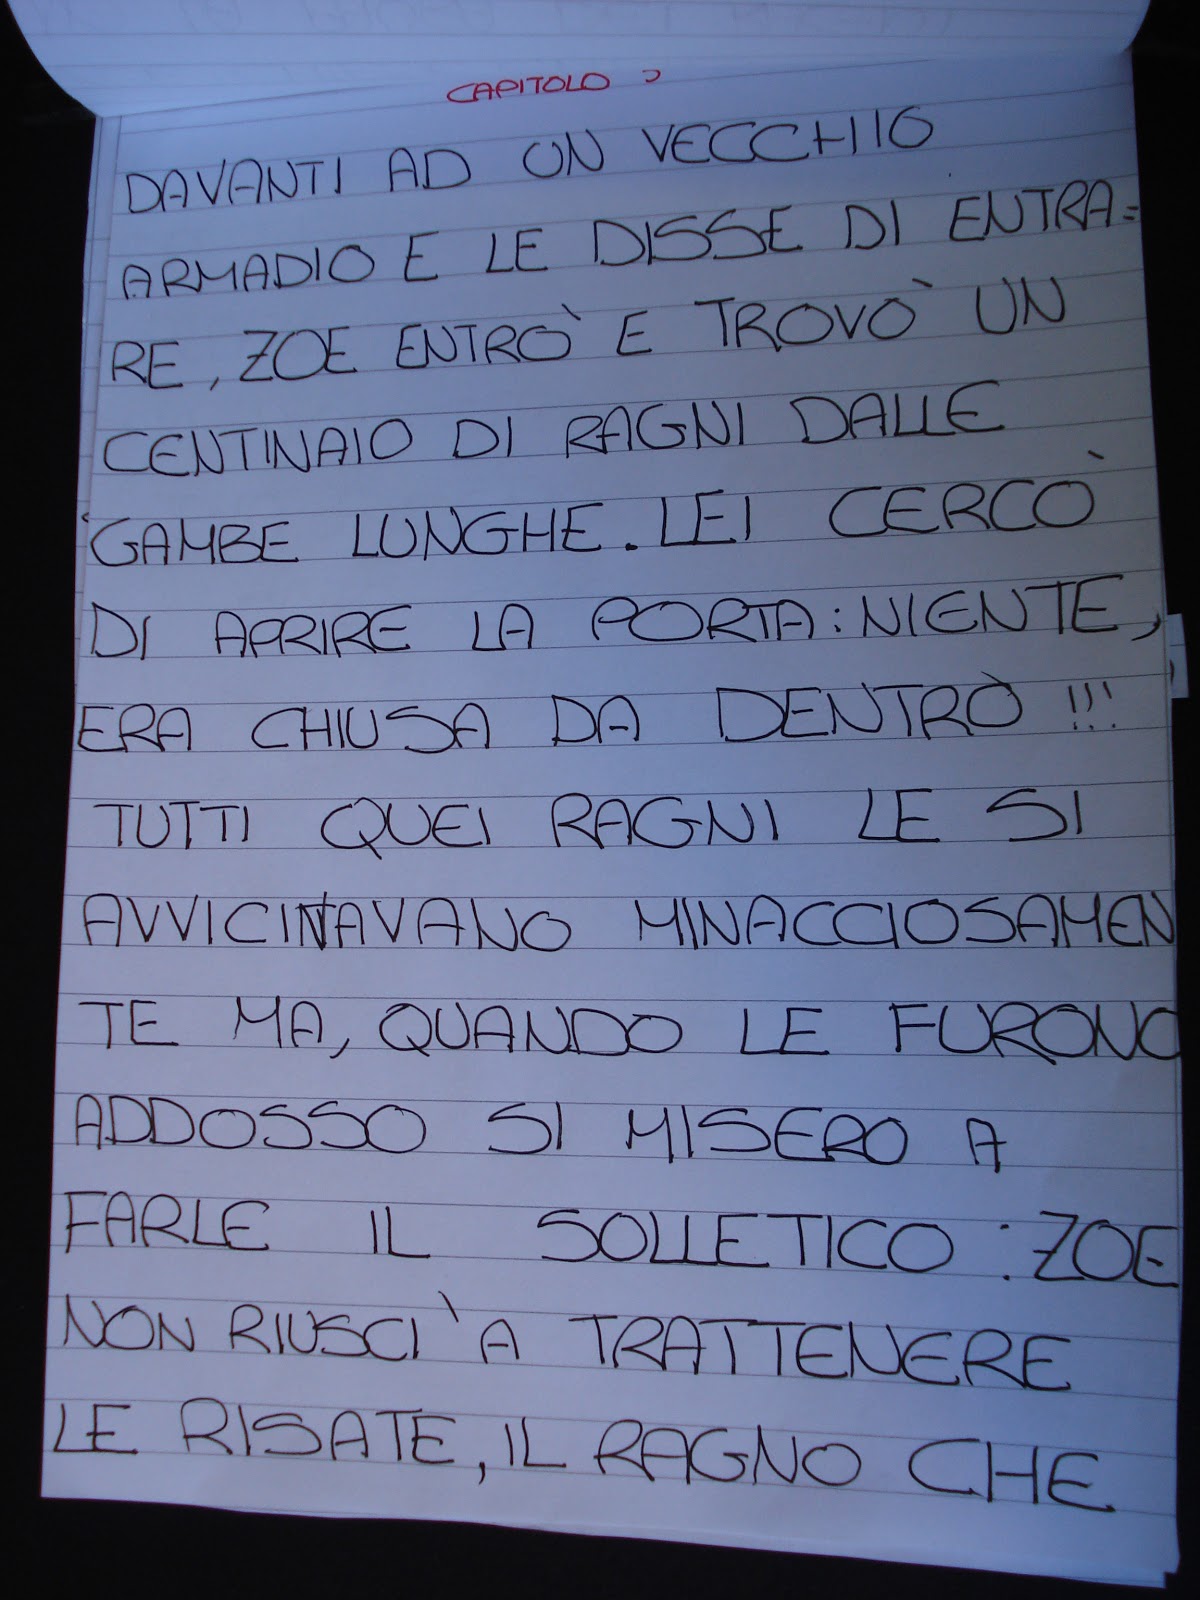 CAPITOLO
DAVANTI AD UN VECCHIO
ARMADIO E LE DISSE DI ENTRA=
RE, ZOE ENTRÒ E TROVÒ UN
CENTINAIO DI RAGNI DALLE
GAMBE LUNGHE. LEI CERCÒ
DI APRIRE LA PORTA: NIENTE,
ERA CHIUSA DA DENTRO !!!
TUTTI QUEI RAGNI LE SI
AVVICINAVANO MINACCIOSAMEN
TE MA, QUANDO LE FURONO
ADDOSSO SI MISERO A
FARLE IL SOLLETICO : ZOE
NON RIUSCÌ A TRATTENERE
LE RISATE, IL RAGNO CHE